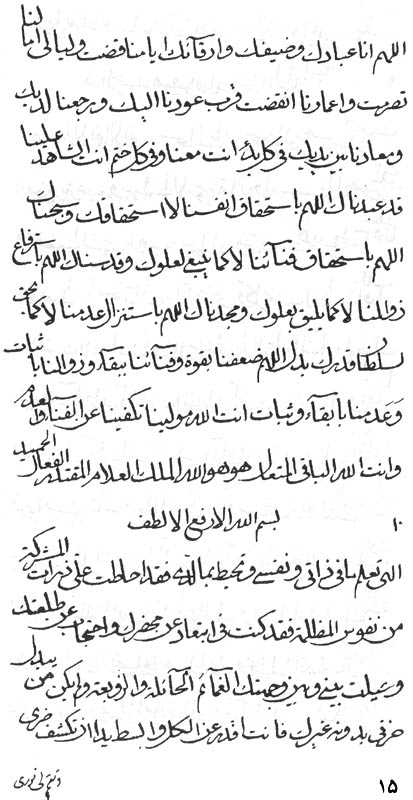 اللهم انا عبادك وضيفك وارقآئك ايامنا قضت وليالى ايامنا لنا
تصرمت واعمارنا انقضت قرب عودنا اليك ورجعنا لديك
ومعادنا بين يديك فى كل بدء انت معنا وفى كل ختم انت الشاهد علينا
قد عبدناك اللهم باستحقاق انفسنا لا استحقاقك وسبحناك
اللهم باستحقاق فنآئنا لا كما ينبغى لعلوك وقدسناك اللهم بارتفاع
زوالنا لا كما يليق بعلوك ومجدناك اللهم باستنزال عدمنا لا كما يحق
لسلطان قدرك بدل اللهم ضعفنا بقوة وفنآئنا ببقآء وزوالنا باثبات
وعدمنا بابقآء وثبات انت الله مولينا تكفينا عن الفنآء والعدم
وانت الله الباقى المتعال هو هو الله الملك العلام المقتدر الفعال الحميد
١٠ بسم الله الارفع الالطف
الهى تعلم ما فى ذاتى ونفسى وتحيط بما لدى فقد احاطت على ذرات المشركة
من نفوس المظلمة فقد كنت فى ابتعاد عن محضرك واحتجاب عن طلعتك
وحيلت بينى وبين وجهتك الغمائم الحائلة والزوبعة ولم يكن من يبدل
حزنى بدونه غيرك فانت اقدر عن الكل وابسط يدا اذ تكشف حزنى
١٥